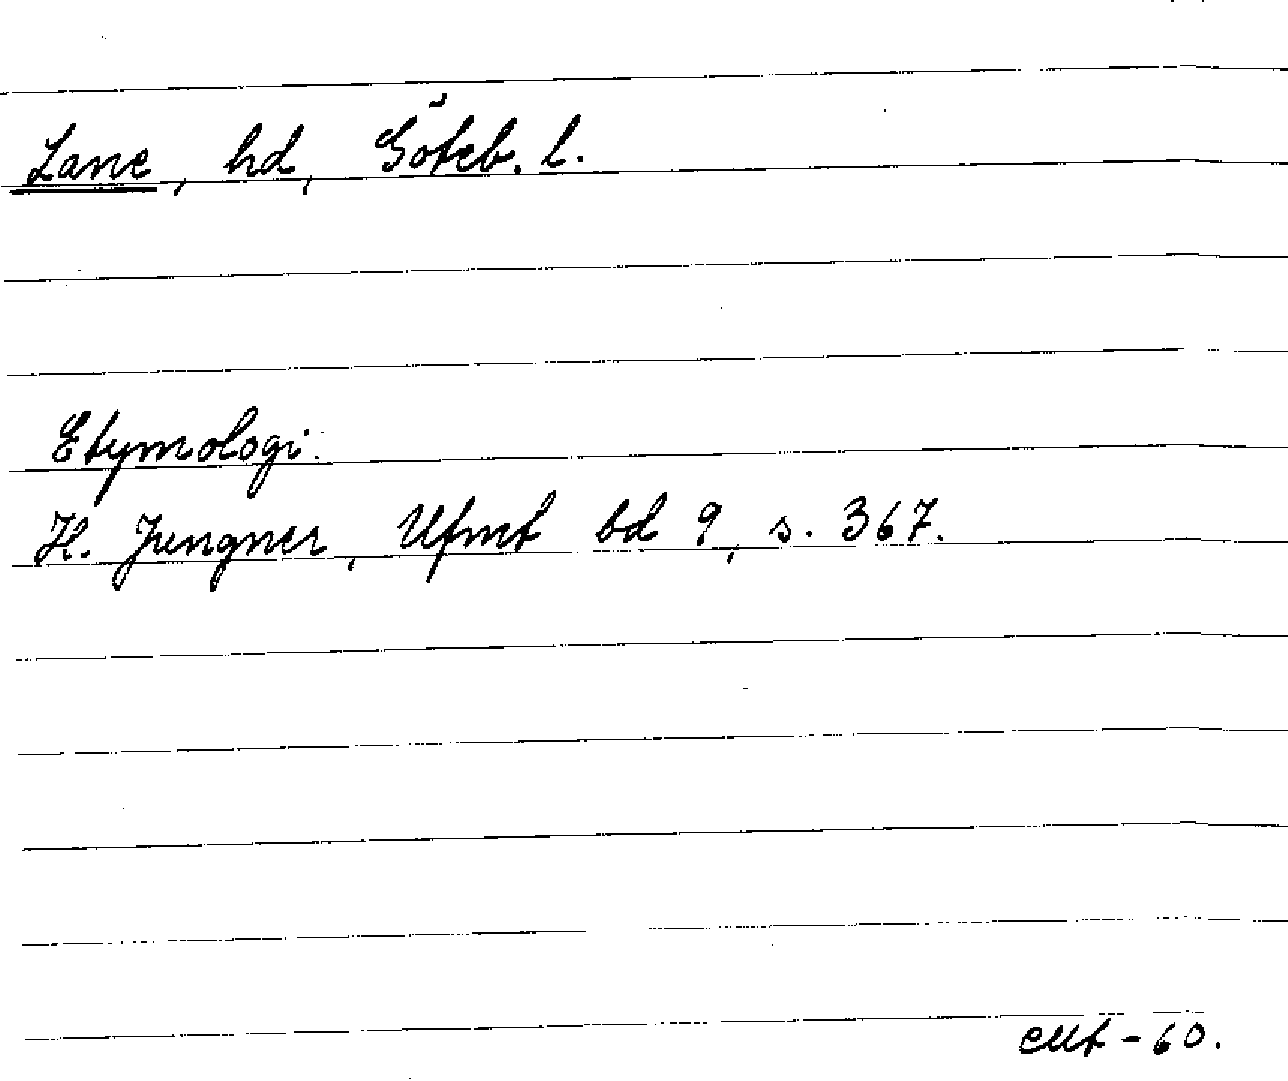 Lane, hd, Göteb. l.
Etymologi.
H. Jungner, Ufmt bd 9, s. 367.
-60.